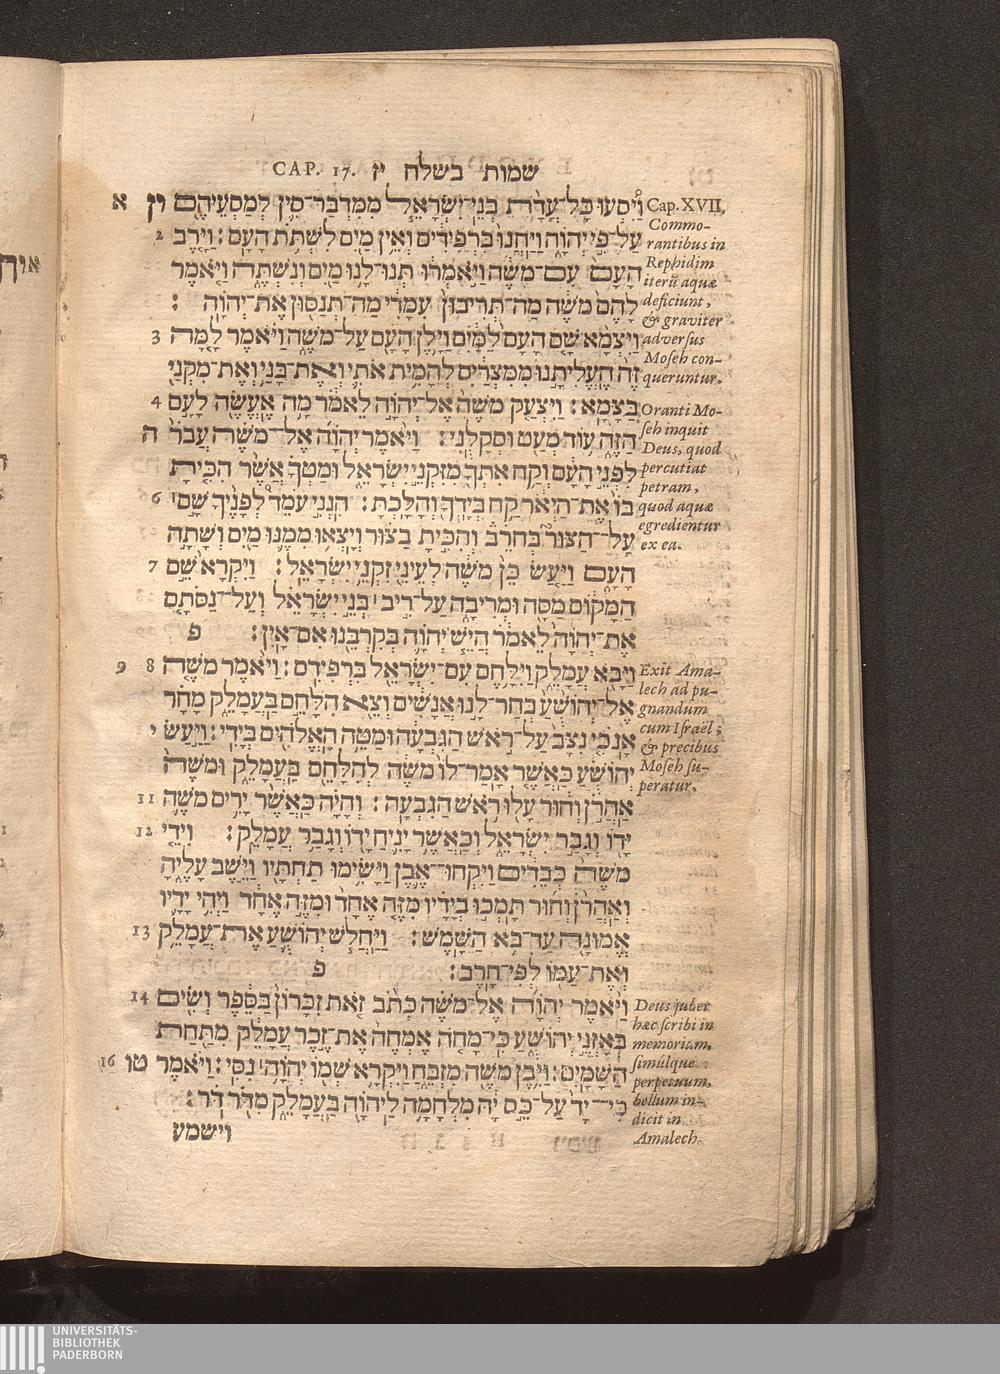 שמות בשלח יז CAP. 17.
וַיִּסְעוּ כָּל־עֲדַת בְּנֵי־יִשְׂרָאֵל מִמִּדְבַּר־סִין לְמַסְעֵיהֶם יז א
עַל־פִּי יְהוָה וַיַּחֲנוּ בִּרְפִידִים וְאֵין מַיִם לִשְׁתֹּת הָעָם׃ וַיָּרֶב 2
הָעָם עִם־מֹשֶׁה וַיֹּאמְרוּ תְּנוּ־לָנוּ מַיִם וְנִשְׁתֶּה וַיֹּאמֶר
לָהֶם מֹשֶׁה מַה־תְּרִיבוּן עִמָּדִי מַה־תְּנַסּוּן אֶת־יְהוָה׃
וַיִּצְמָא שָׁם הָעָם לַמַּיִם וַיָּלֶן הָעָם עַל־מֹשֶׁה וַיֹּאמֶר לָמָּה 3
זֶּה הֶעֱלִיתָנוּ מִמִּצְרַיִם לְהָמִית אֹתִי וְאֶת־בָּנַי וְאֶת־מִקְנַי
בַּצָּמָא׃ וַיִּצְעַק מֹשֶׁה אֶל־יְהוָה לֵאמֹר מָה אֶעֱשֶׂה לָעָם 4
הַזֶּה עוֹד מְעַט וּסְקָלֻנִי׃ וַיֹּאמֶר יְהוָה אֶל־מֹשֶׁה עֲבֹר ה
לִפְנֵי הָעָם וְקַח אִתְּךָ מִזִּקְנֵי יִשְׂרָאֵל וּמַטְּךָ אֲשֶׁר הִכִּיתָ
בּוֹ אֶת־הַיְאֹר קַח בְּיָדְךָ וְהָלָכְתָּ׃ הִנְנִי עֹמֵד לְפָנֶיךָ שָּׁם 6
עַל־הַצּוּר בְּחֹרֵב וְהִכִּיתָ בַצּוּר וְיָצְאוּ מִמֶּנּוּ מַיִם וְשָׁתָה
הָעָם וַיַּעַשׂ כֵּן מֹשֶׁה לְעֵינֵי זִקְנֵי יִשְׂרָאֵל׃ וַיִּקְרָא שֵׁם 7
הַמָּקוֹם מַסָּה וּמְרִיבָה עַל־רִיב בְּנֵי יִשְׂרָאֵל וְעַל־נַסֹּתָם
אֶת־יְהוָה לֵאמֹר הֲיֵשׁ יְהוָה בְּקִרְבֵּנוּ אִם־אָיִן׃ פ
וַיָּבֹא עֲמָלֵק וַיִּלָּחֶם עִם־יִשְׂרָאֵל בִּרְפִידִם׃ וַיֹּאמֶר מֹשֶׁה 8 9
אֶל־יְהוֹשֻׁעַ בְּחַר־לָנוּ אֲנָשִׁים וְצֵא הִלָּחֵם בַּעֲמָלֵק מָחָר
אָנֹכִי נִצָּב עַל־רֹאשׁ הַגִּבְעָה וּמַטֵּה הָאֱלֹהִים בְּיָדִי׃ וַיַּעַשׂ י
יְהוֹשֻׁעַ כַּאֲשֶׁר אָמַר־לוֹ מֹשֶׁה לְהִלָּחֵם בַּעֲמָלֵק וּמֹשֶׁה
אַהֲרֹן וְחוּר עָלוּ רֹאשׁ הַגִּבְעָה׃ וְהָיָה כַּאֲשֶׁר יָרִים מֹשֶׁה 11
יָדוֹ וְגָבַר יִשְׂרָאֵל וְכַאֲשֶׁר יָנִיחַ יָדוֹ וְגָבַר עֲמָלֵק׃ וִידֵי 12
מֹשֶׁה כְּבֵדִים וַיִּקְחוּ־אֶבֶן וַיָּשִׂימוּ תַחְתָּיו וַיֵּשֶׁב עָלֶיהָ
וְאַהֲרֹן וְחוּר תָּמְכוּ בְיָדָיו מִזֶּה אֶחָד וּמִזֶּה אֶחָד וַיְהִי יָדָיו
אֱמוּנָה עַד־בֹּא הַשָּׁמֶשׁ׃ וַיַּחֲלֹשׁ יְהוֹשֻׁעַ אֶת־עֲמָלֵק 13
וְאֶת־עַמּוֹ לְפִי־חָרֶב׃ פ
וַיֹּאמֶר יְהוָה אֶל־מֹשֶׁה כְּתֹב זֹאת זִכָּרוֹן בַּסֵּפֶר וְשִׂים 14
בְּאָזְנֵי יְהוֹשֻׁעַ כִּי־מָחֹה אֶמְחֶה אֶת־זֵכֶר עֲמָלֵק מִתַּחַת
הַשָּׁמָיִם׃ וַיִּבֶן מֹשֶׁה מִזְבֵּחַ וַיִּקְרָא שְׁמוֹ יְהוָה נִסִּי׃ וַיֹּאמֶר טו 16
כִּי־יָד עַל־כֵּס יָהּ מִלְחָמָה לַיהוָה בַּעֲמָלֵק מִדֹּר דֹּר׃
וישמע
Cap. XVII.
Commo-
rantibus in
Rephidim
iterū aquæ
deficiunt,
& graviter
adversus
Moseh con-
queruntur.
Oranti Mo-
seh inquit
Deus, quod
percutiat
petram,
quod aquæ
egredientur
ex ea.
Exit Ama-
lech ad pu-
gnandum
cum Israël;
& precibus
Moseh su-
peratur.
Deus jubet
hæc scribi in
memoriam,
simúlque
perpetuum
bellum in-
dicit in
Amalech.
UNIVERSITÄTS-
BIBLIOTHEK
PADERBORN